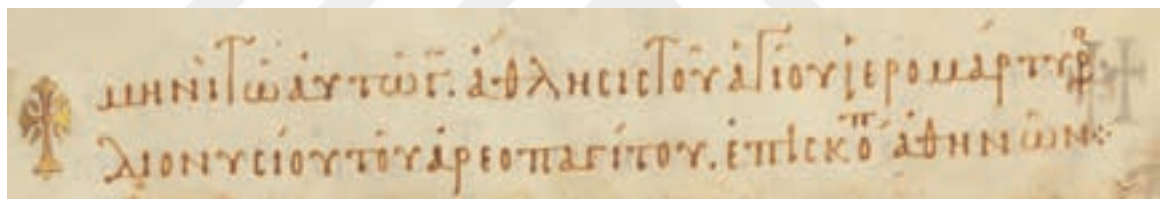 μηνὶ τῶ ἀυτῶ γ̅. ἄθλησις τοῦ ἁγίου ἱερομάρτυρο
Διονυσίου τοῦ ἀρεοπαγίτου. ἐπισκόπ ἀθηνῶν⁘